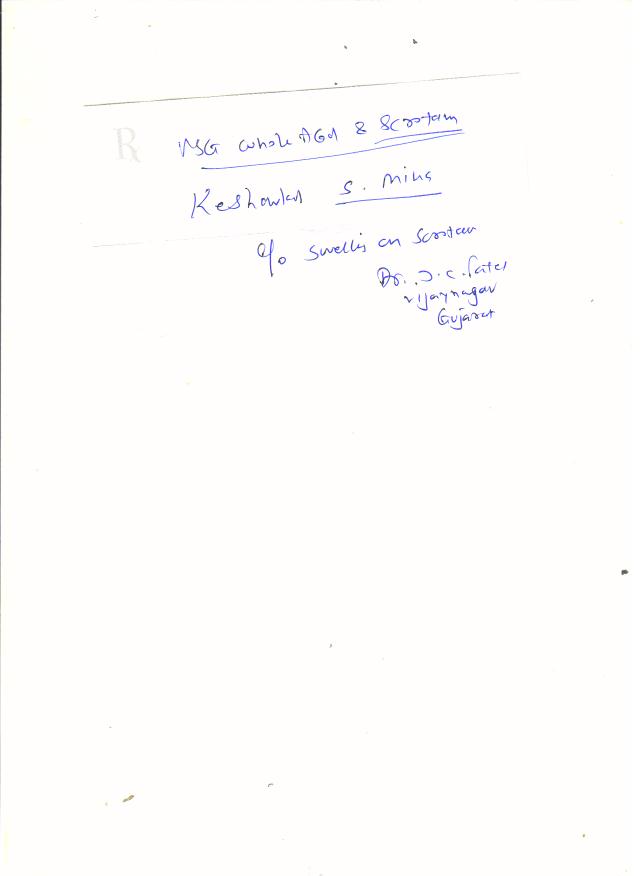 ℞ USG whole Abd & Scrotam
Keshavlal S. Mina
c/o Swellis on Scrotam
Dr. J. C. Patel
vijaynagar
Gujarat